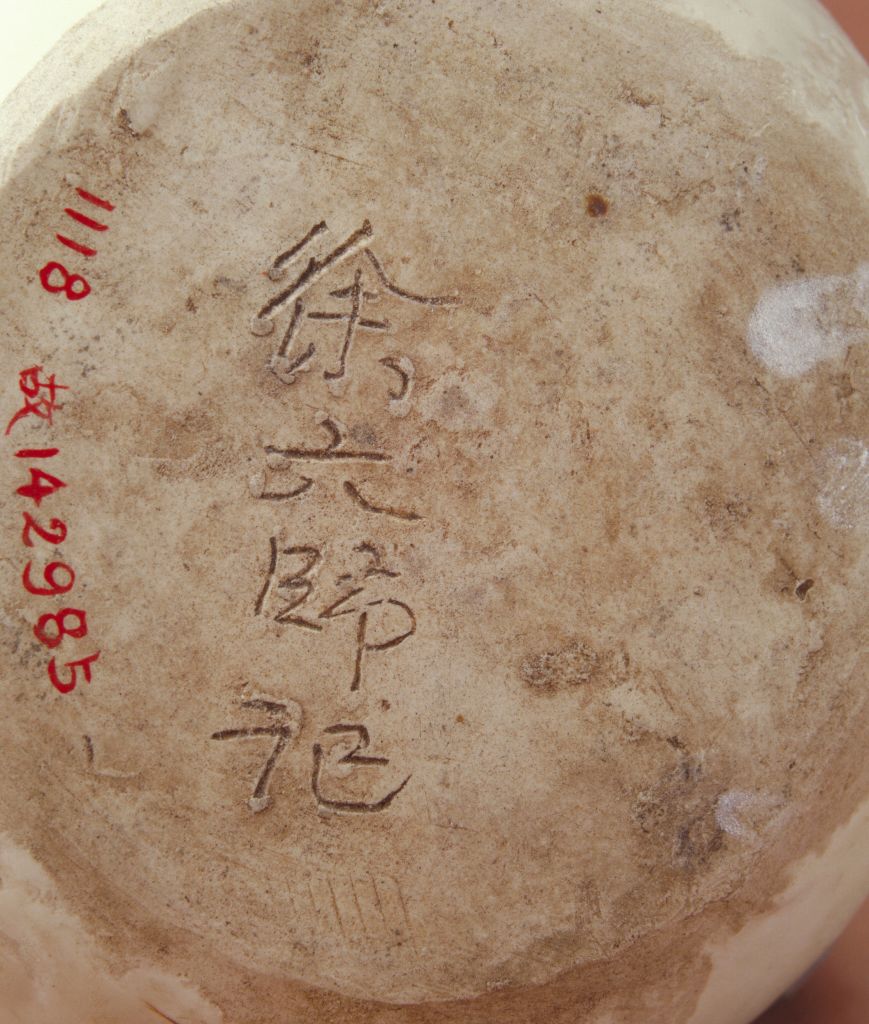 徐六師记
1118 故142985